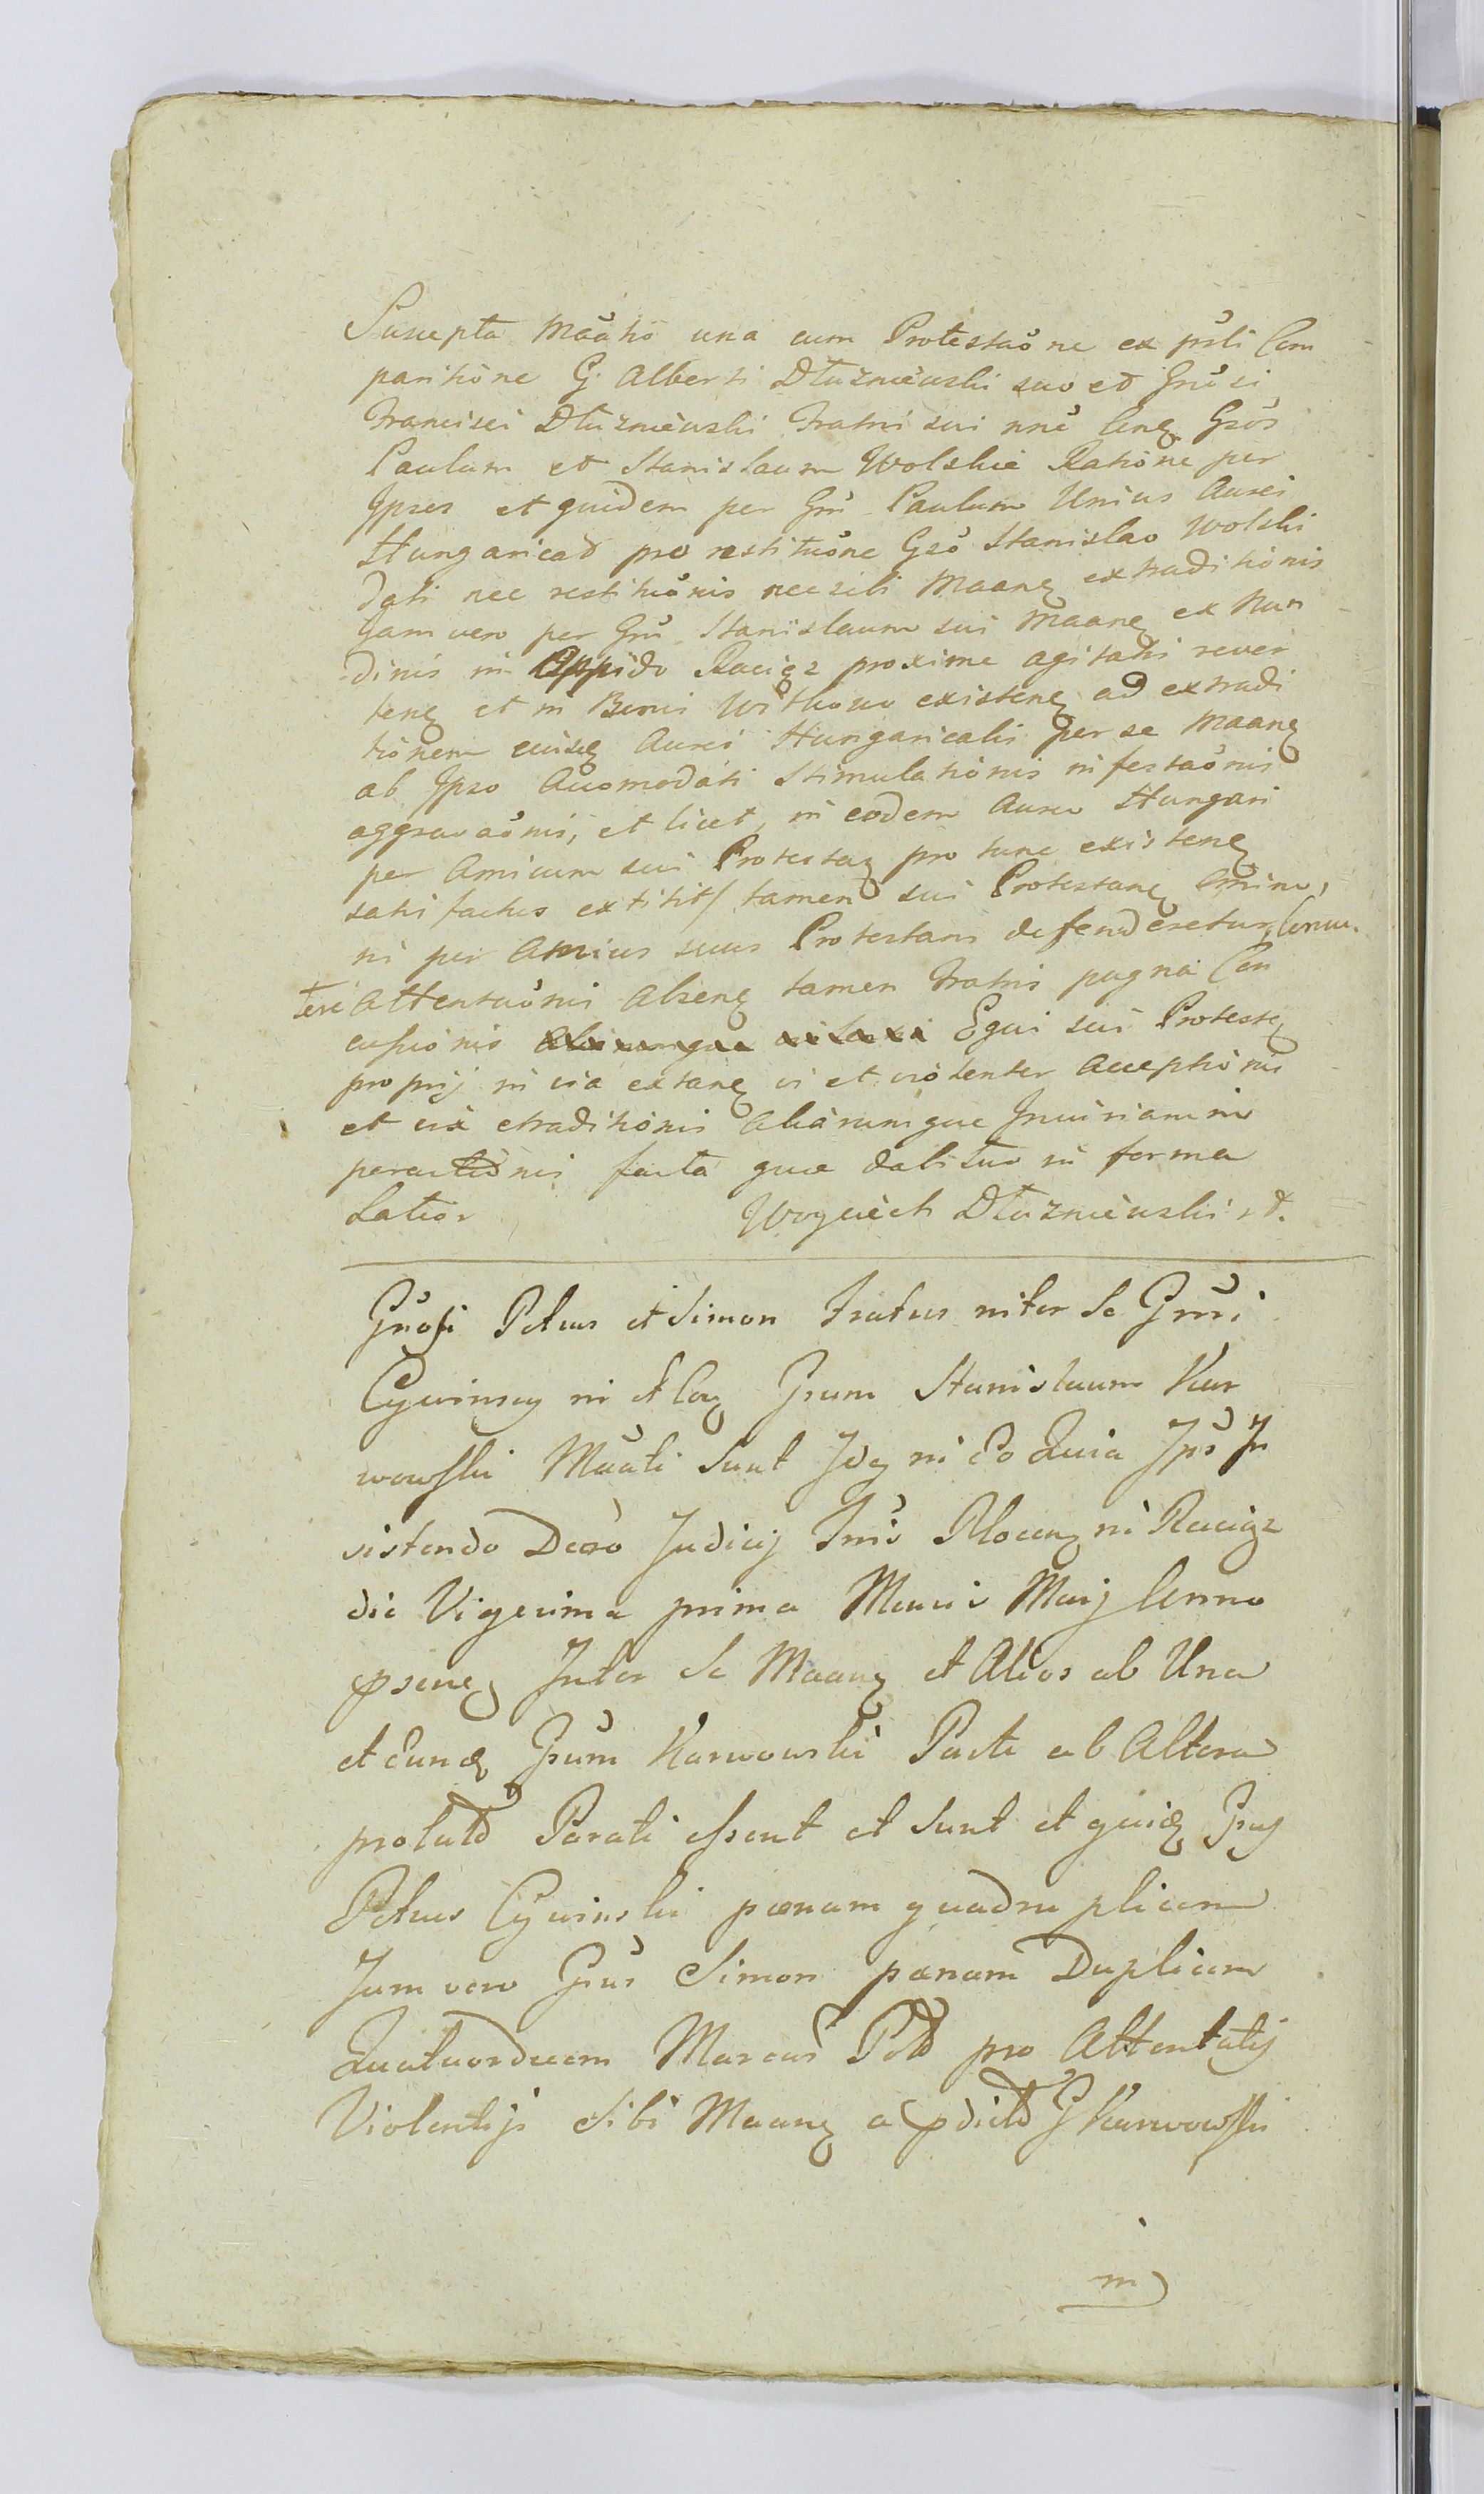 Suscepta Mããtio una cum Protestaõne ex pñli Com
paritione G. Alberti Dłuzniewski suo et Gnõsi
Francisci Dłuzniewski Fratris sui nne Gsõs
Paulum et Stanislaum Wolskie Ratione per
Ipsos et quidem per Gnũ Paulum Unius Aurei
Hungarical pro restituõne Gsõ Stanislao Wolski
dati nec restituõnis nec sibi Maanę extraditionis
Jam vero per Gnũ Stanislaum sui Maanę ex Nun
dinis in Oppido Raciąz proxime agitatis rever
tenę et in Bonis Witkowo existenę ad extradi
tionem eiusdę Aurei Hungaricalis per se Maanę
ab Ipso Accomodati Stimulationis infestaõnis
aggravaõnis, et licet, in eodem Aureo Hungari
per Amicum sui Protestaę pro tunc existenę
satisfactus extitit / tamen sui Protestanę Animo,
ni per Amicos suos Protestans defenderetur,
Attentaõnis Absenę tamen Fratris pugna Con
cussionis Equi sui Protestę
proprij in via extanę vi et violenter Acceptionis
et vix extraditionis Aliarumque Iniuriarum
peractionis facta que dabitur in forma
Latior Woyciech Dłuzniewski
Gnõsi Petrus et Simon Fratres inter se Gnñi
Cywinscy in et Coę Gsum Stanislaum Kar
wowski Mããti sunt Idę in Eo Quia Ipsi In
sistendo Decrõ Judicij Tnis Plocenę in Raciąz
die Vigesima prima Mensis Maij Anno
psenę Inter se Maanę et Alios ab Una
et Eundę Gsum Karwowski Parte ab Altera
prolato Parati essent et sunt et quidę Gsus
Petrus Cywinski pœnam quadruplicem
Jam vero Gsus Simon pœnam Duplicem
Quatuordecem Marcas Pol pro Attentatis
Violentijs sibi Maanę a pdicto G Karwowski
in